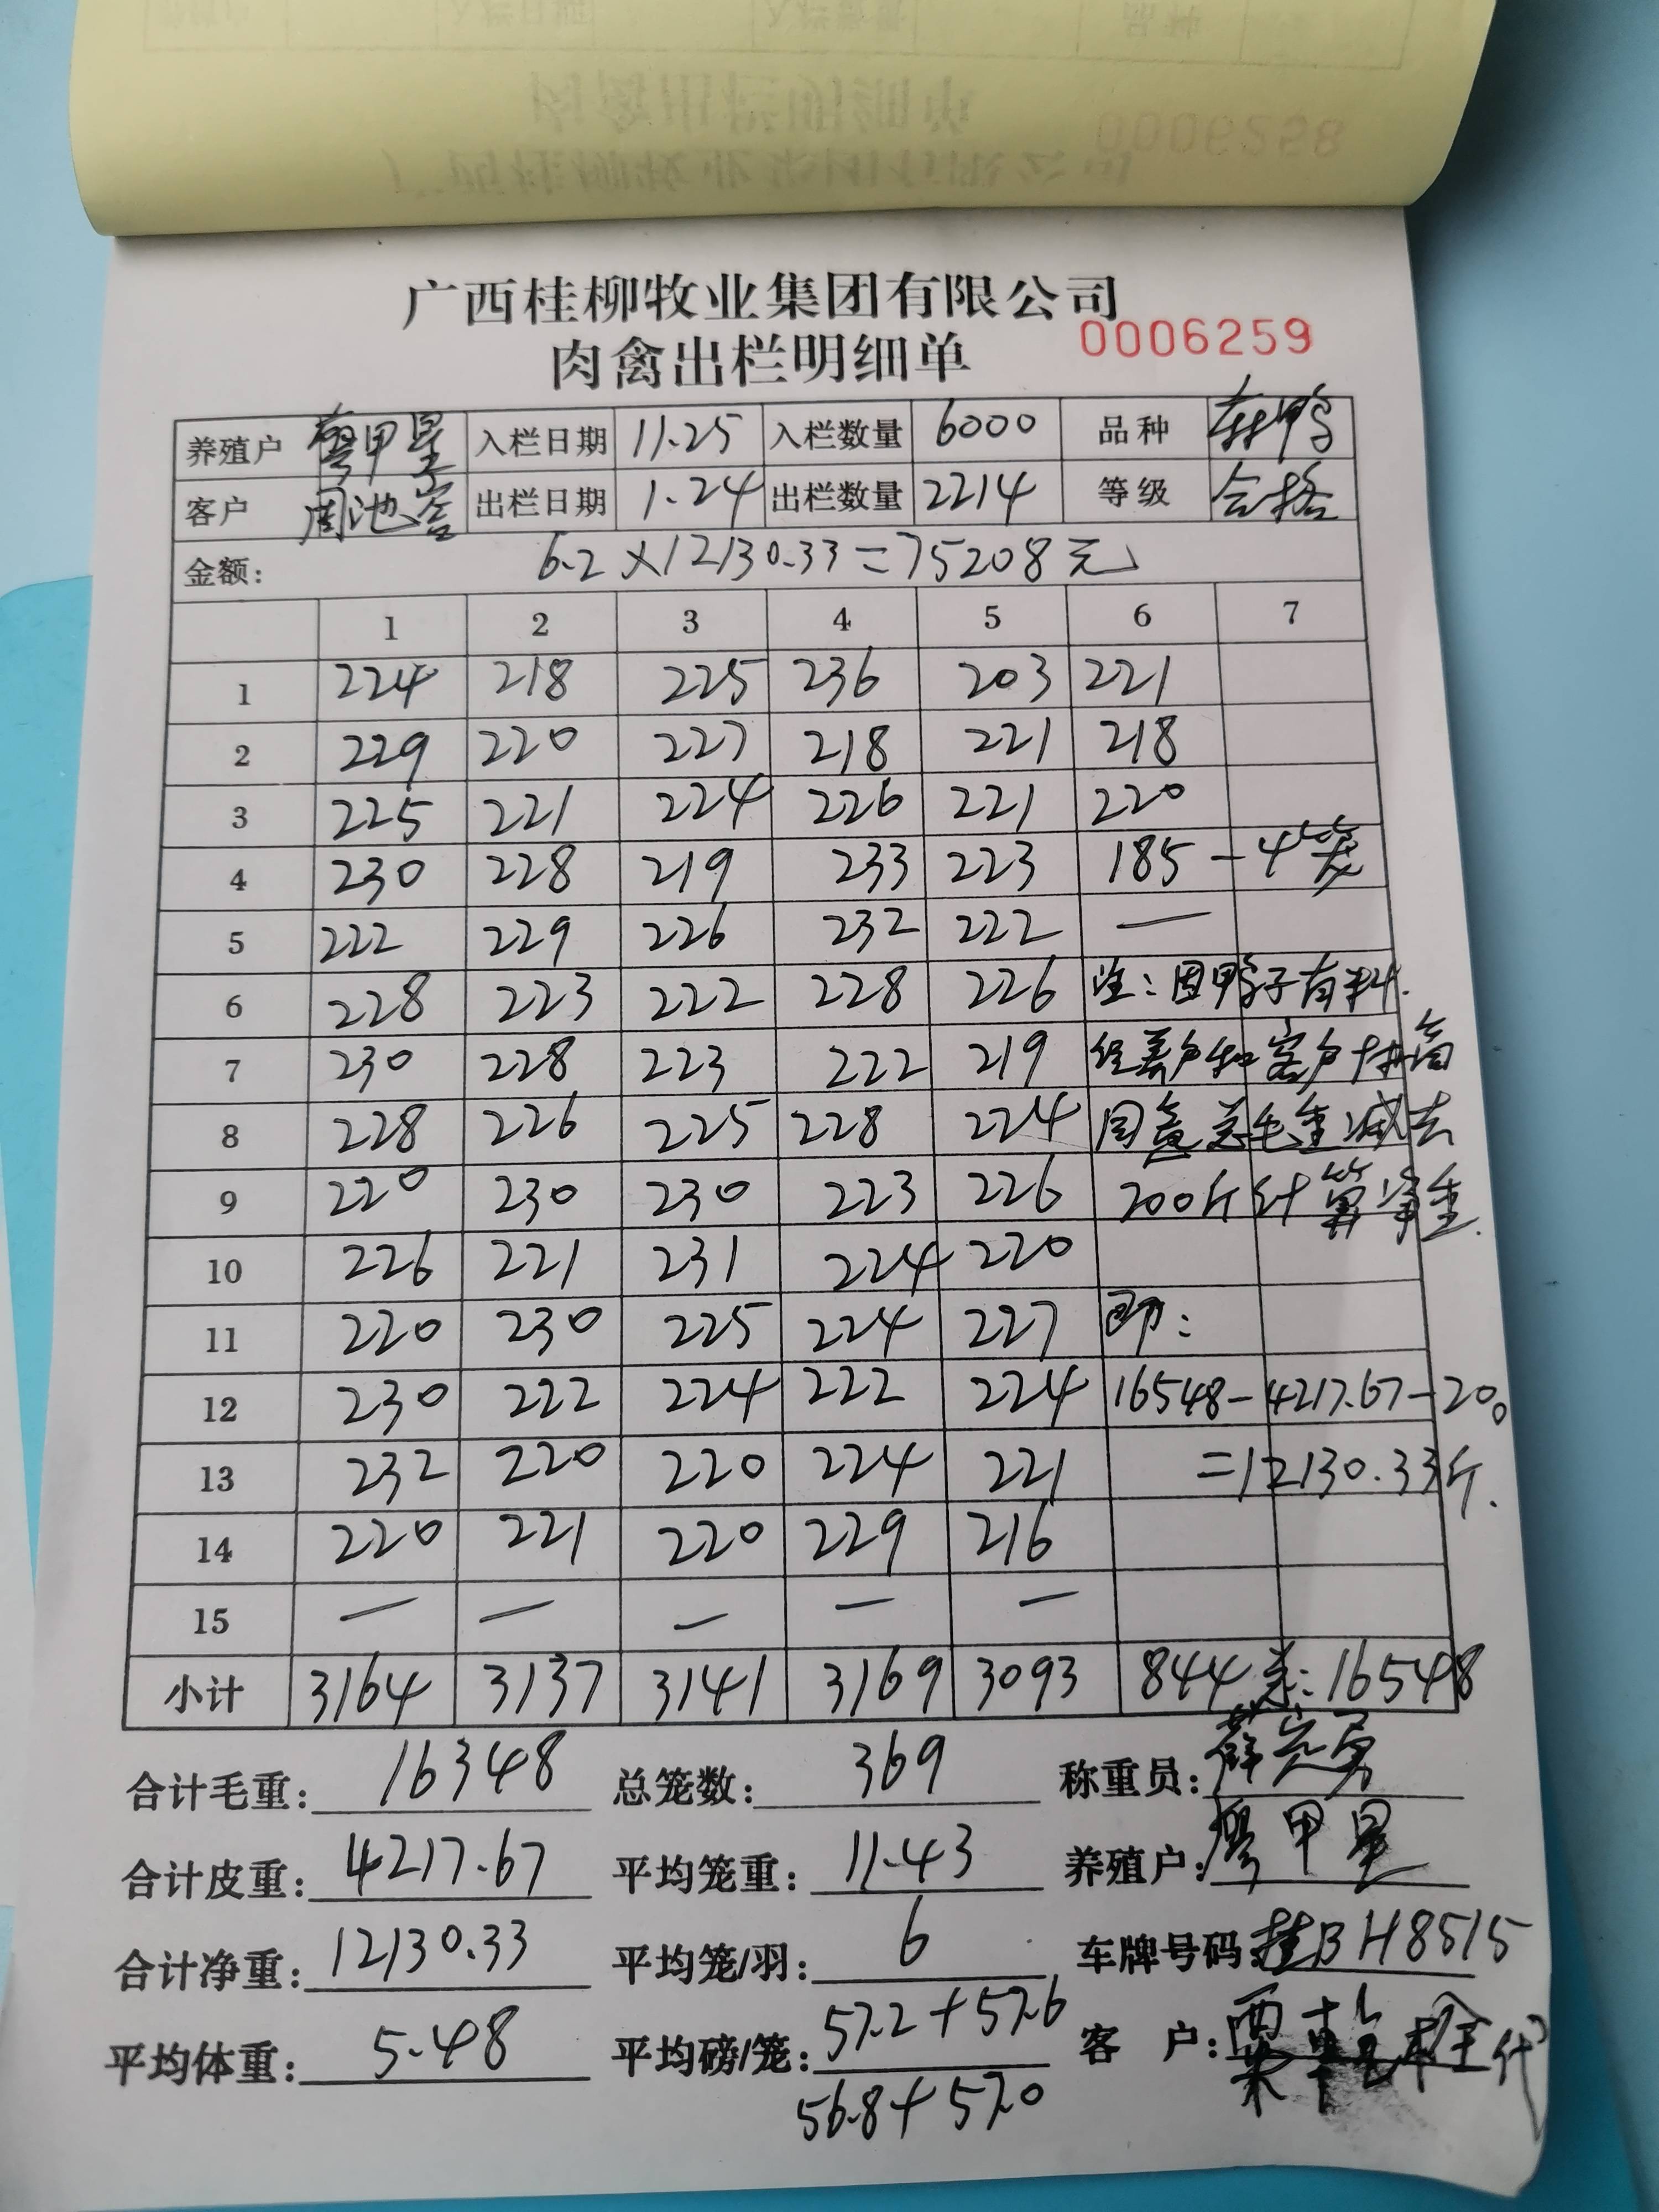 0006258
广西桂柳牧业集团有限公司
肉禽出栏明细单 0006259
养殖户 廖甲星 入栏日期 11.25 入栏数量 6000 品种
客户 周池 出栏日期 1.24 出栏数量 2214 等级 合格
金额: 6.2×12130.33=75208元
1 2 3 4 5 6 7
1 224 218 225 236 203 221
2 229 220 227 218 221 218
3 225 221 224 226 221 220
4 230 228 219 233 223 185 — 4笼
5 222 229 226 232 222 —
6 228 223 222 228 226 注:因鸭子有料.
7 230 228 223 222 219 经养户和客户协商
8 228 226 225 228 224 同意总毛重减去
9 220 230 230 223 226 200斤计算净重.
10 226 221 231 224 220
11 220 230 225 224 227 即:
12 230 222 224 222 224 16548-4217.67-200
13 232 220 220 224 221 =12130.33斤.
14 220 221 220 229 216
15 — — — — —
小计 3164 3137 3141 3169 3093 844 总:16548
合计毛重: 16348 总笼数: 369 称重员:
合计皮重: 4217.67 平均笼重: 11.43 养殖户: 廖甲星
合计净重: 12130.33 平均笼/羽: 6 车牌号码: 桂BH8515
平均体重: 5.48 平均磅/笼: 57.2+57.6 客 户: 代
56.8+57.0